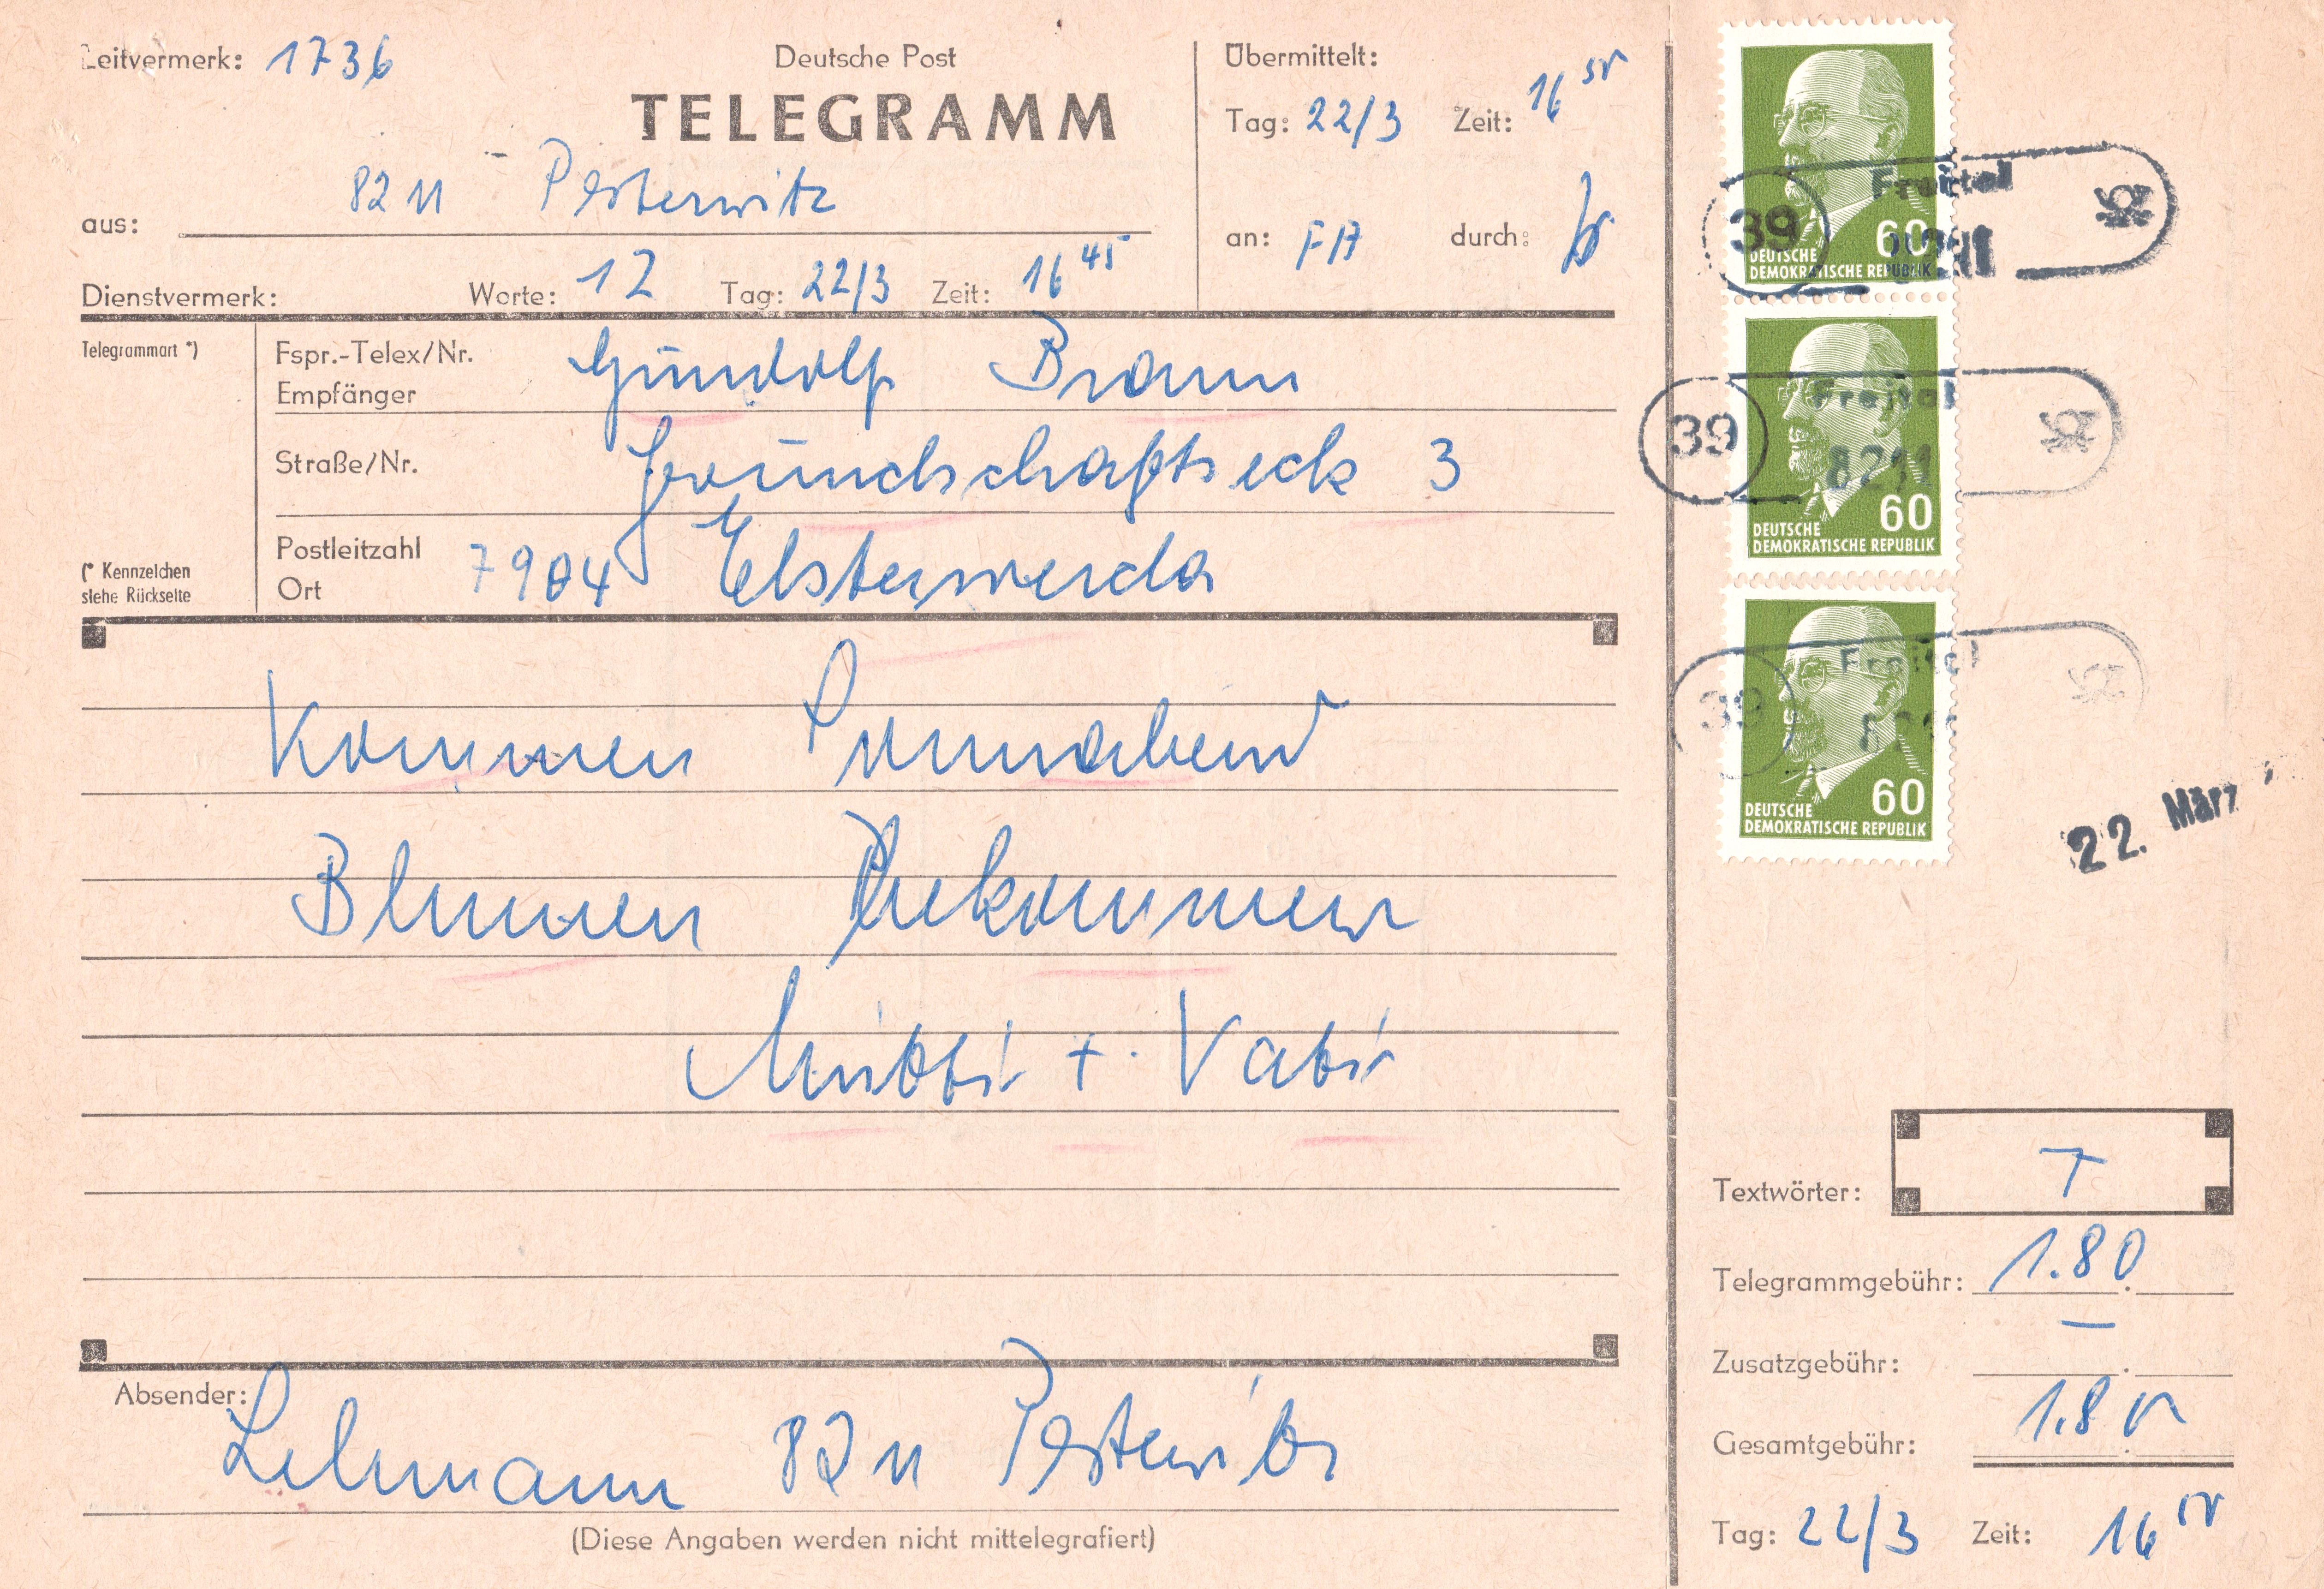 Leitvermerk: 1736
Deutsche Post
TELEGRAMM
aus: 8211 Pesterwitz
Dienstvermerk: Worte: 12 Tag: 22/3 Zeit: 16 45
Übermittelt:
Tag: 22/3 Zeit: 16 50
an: FA durch:
Telegrammart *)
(* Kennzeichen
siehe Rückseite
Fspr.-Telex/Nr.
Empfänger Gundolf Braun
Straße/Nr. Freundschaftseck 3
Postleitzahl
Ort 7904 Elsterwerda
Kommen Sonnabend
Blumen bekommen
Mutti + Vati
Absender: Lehmann 8211 Pesterwitz
(Diese Angaben werden nicht mittelegrafiert)
39 Freital 8211
60
DEUTSCHE
DEMOKRATISCHE REPUBLIK
39 Freital 8211
60
DEUTSCHE
DEMOKRATISCHE REPUBLIK
39 Freital 821
60
DEUTSCHE
DEMOKRATISCHE REPUBLIK
22. März
Textwörter: 7
Telegrammgebühr: 1.80
Zusatzgebühr: —
Gesamtgebühr: 1.80
Tag: 22/3 Zeit: 16 50